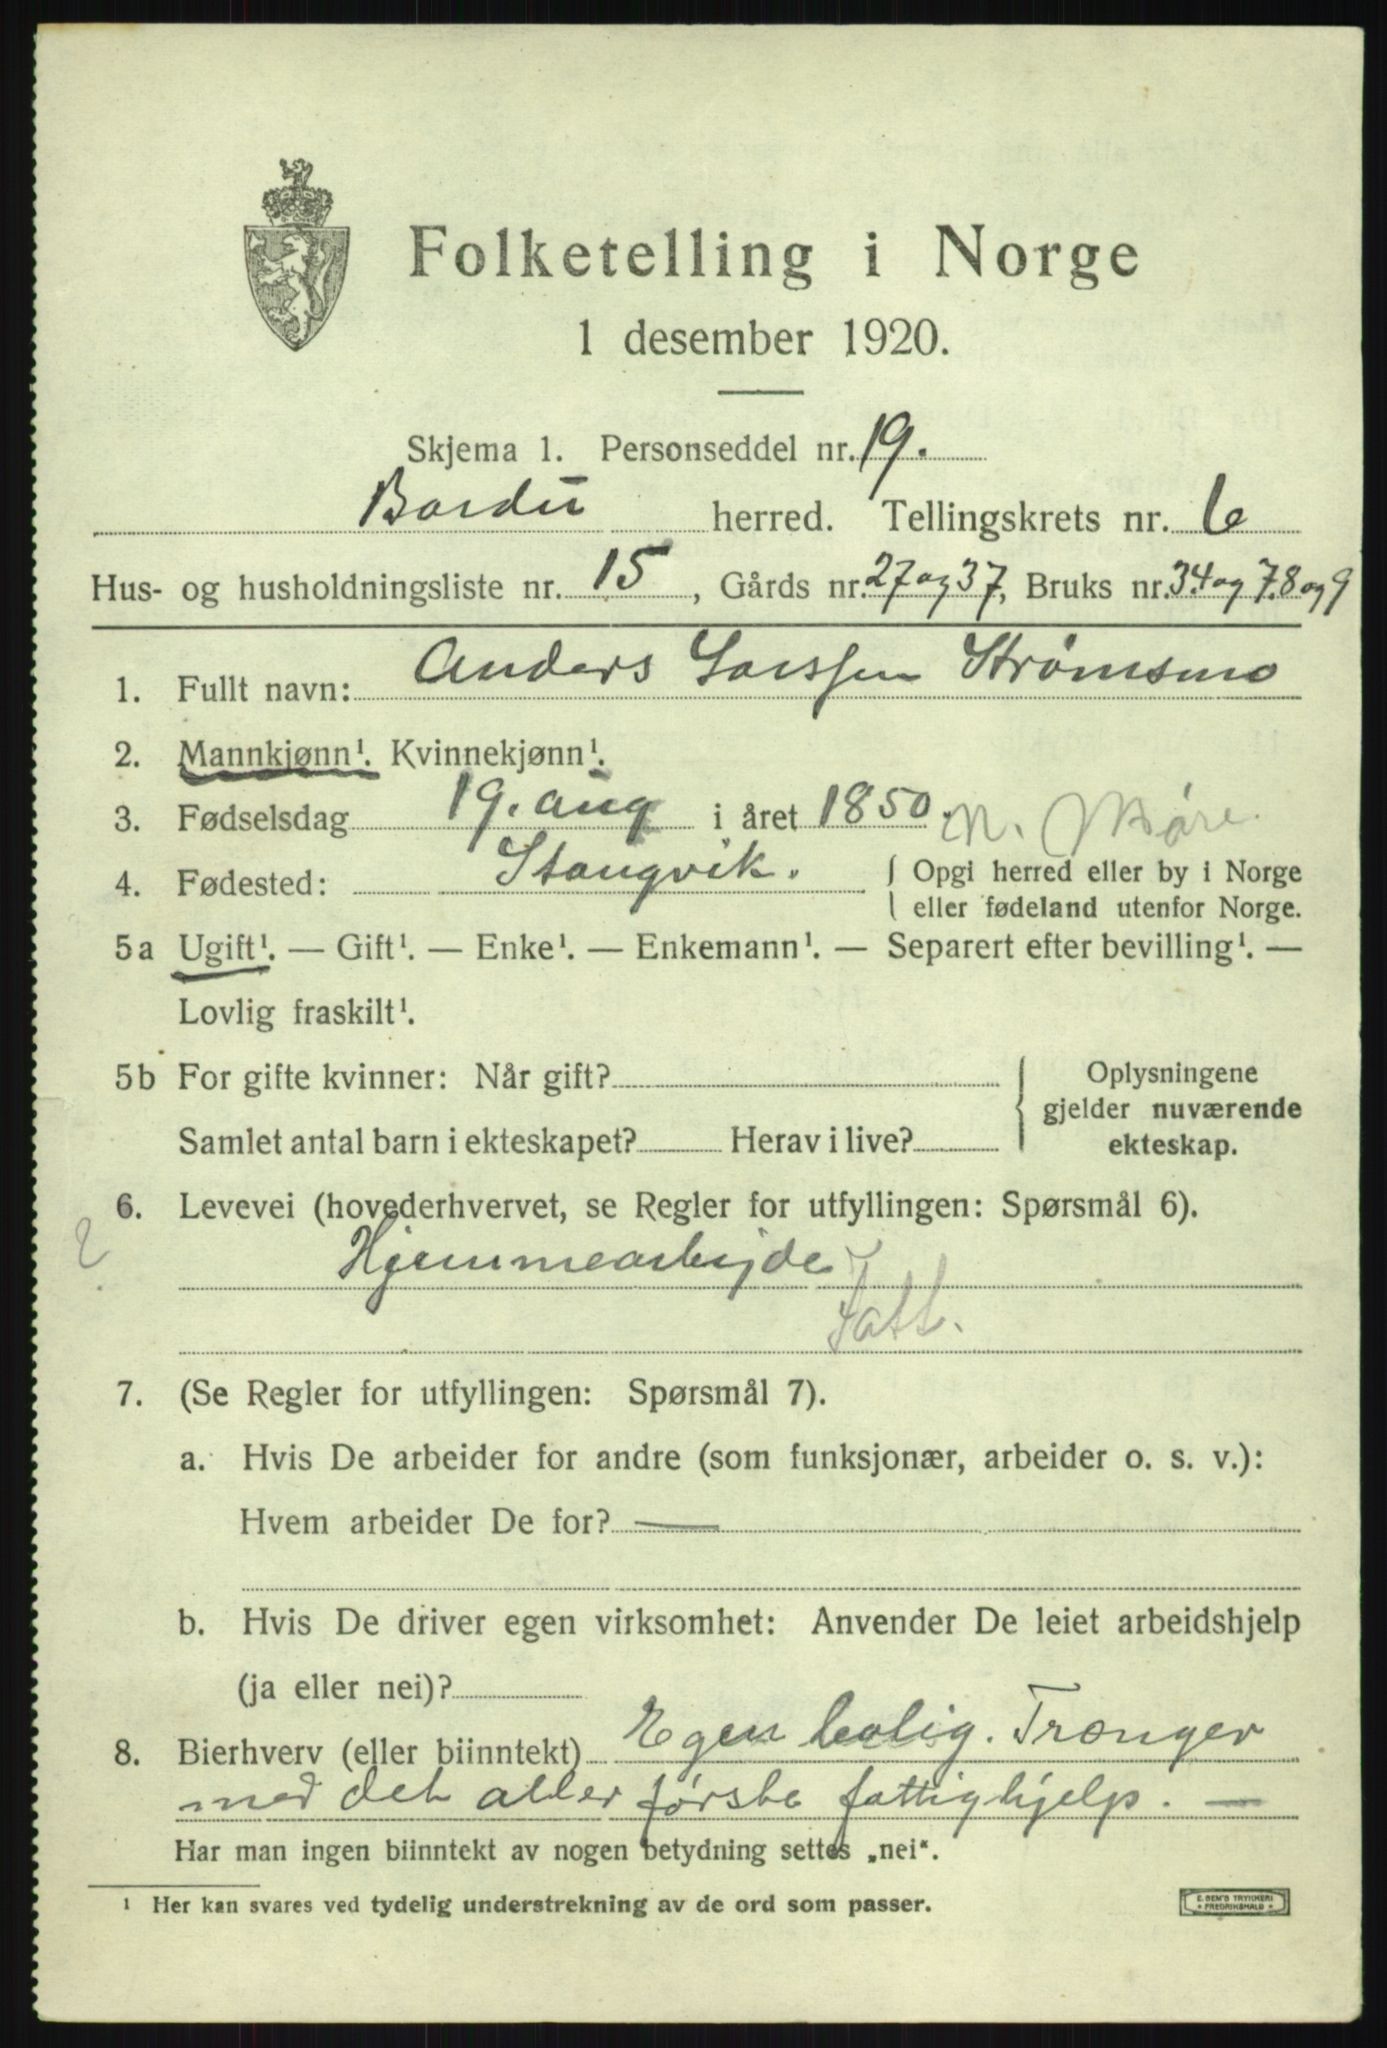 Folketelling i Norge
1 desember 1920.
Skjema 1. Personseddel nr. 19.
Bardu herred. Tellingskrets nr. 6
Hus- og husholdningsliste nr. 15, Gårds nr. 27 og 37, Bruks nr. 34 og 7.8 og 9
1. Fullt navn: Anders Larssen Strømsmo
2. Mannkjønn¹. Kvinnekjønn¹.
3. Fødselsdag 19. aug i året 1850. N. Møre.
4. Fødested: Stangvik. { Opgi herred eller by i Norge
eller fødeland utenfor Norge.
5a Ugift¹. — Gift¹. — Enke¹. — Enkemann¹. — Separert efter bevilling¹. —
Lovlig fraskilt¹.
5b For gifte kvinner: Når gift? { Oplysningene
gjelder nuværende
Samlet antal barn i ekteskapet? Herav i live? ekteskap.
6. Levevei (hovederhvervet, se Regler for utfyllingen: Spørsmål 6).
2
Hjemmearbejde
Fatt.
7. (Se Regler for utfyllingen: Spørsmål 7).
a. Hvis De arbeider for andre (som funksjonær, arbeider o. s. v.):
Hvem arbeider De for? —
b. Hvis De driver egen virksomhet: Anvender De leiet arbeidshjelp
(ja eller nei)?
8. Bierhverv (eller biinntekt) Egen bolig. Trænger
med det aller første fattighjelp. —
Har man ingen biinntekt av nogen betydning settes „nei“.
¹ Her kan svares ved tydelig understrekning av de ord som passer.
E. SEM'S TRYKKERI
FREDRIKSHALD